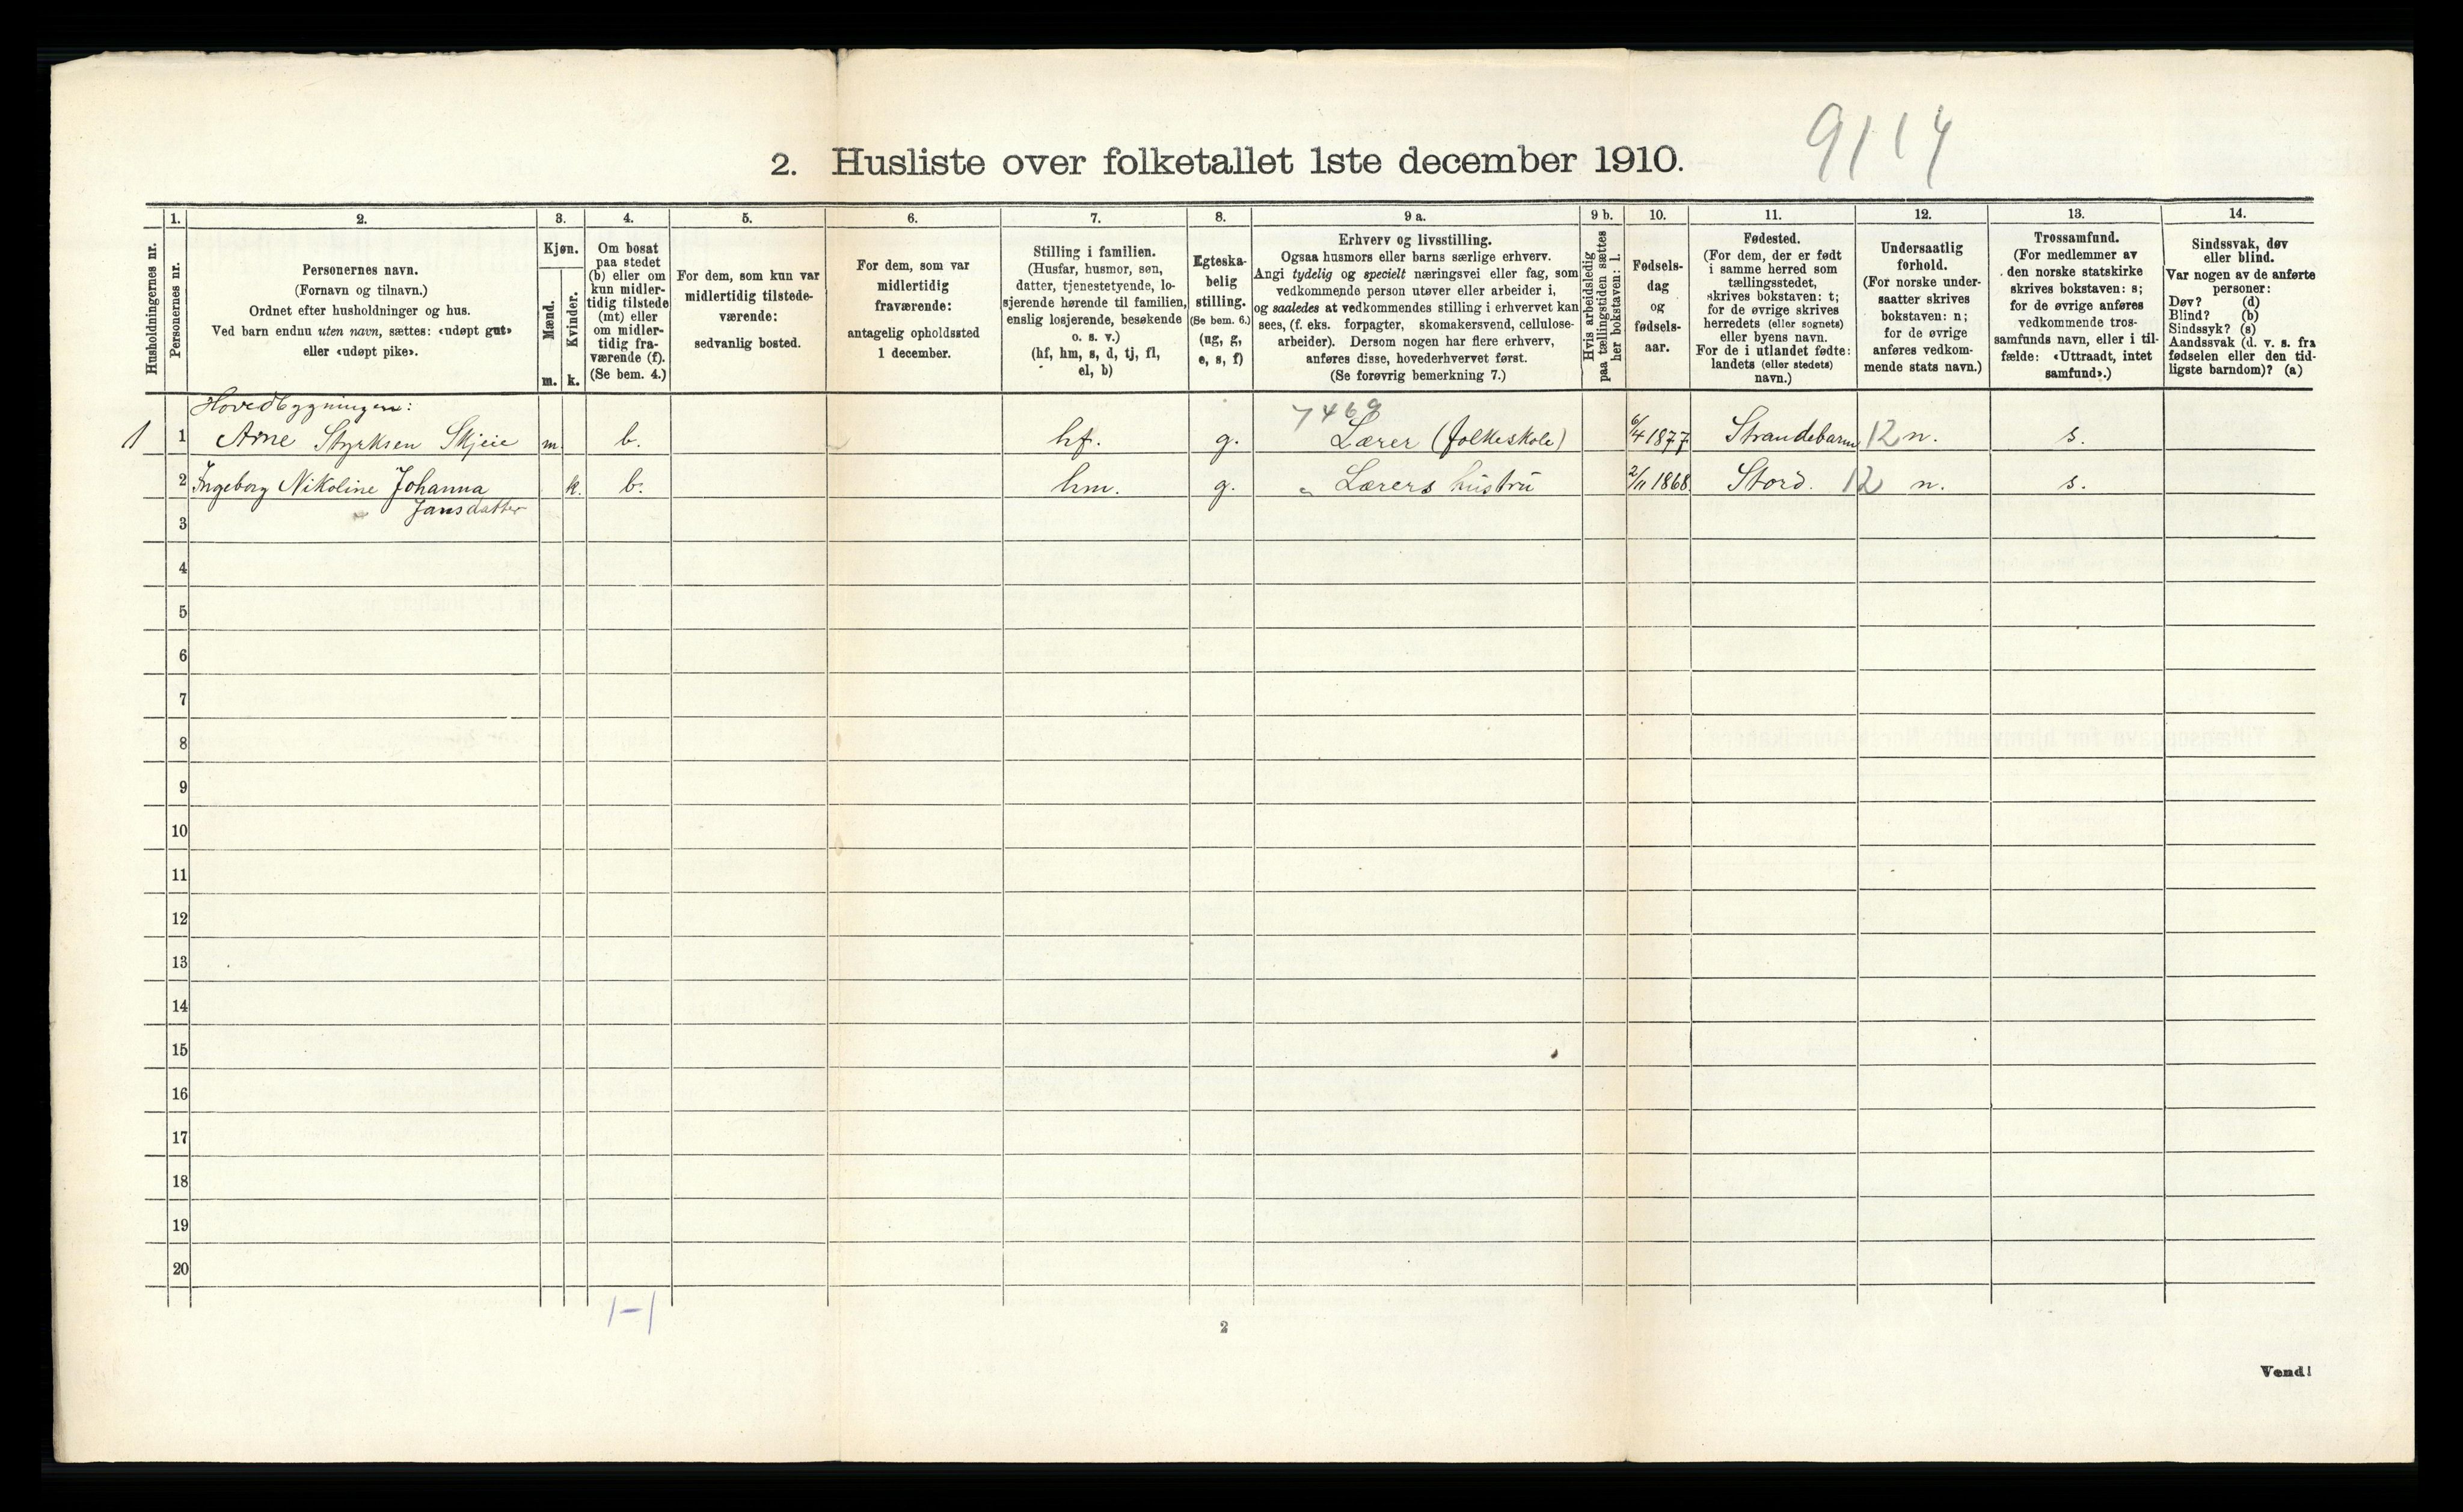 9114
2. Husliste over folketallet 1ste december 1910.
Husholdningernes nr.
1.
Personernes nr.
2.
Personernes navn.
(Fornavn og tilnavn.)
Ordnet efter husholdninger og hus.
Ved barn endnu uten navn, sættes: «udøpt gut»
eller «udøpt pike».
3.
Kjøn.
Mænd.
Kvinder.
m.
k.
4.
Om bosat
paa stedet
(b) eller om
kun midler-
tidig tilstede
(mt) eller
om midler-
tidig fra-
værende (f).
(Se bem. 4.)
5.
For dem, som kun var
midlertidig tilstede-
værende:
sedvanlig bosted.
6.
For dem, som var
midlertidig
fraværende:
antagelig opholdssted
1 december.
7.
Stilling i familien.
(Husfar, husmor, søn,
datter, tjenestetyende, lo-
sjerende hørende til familien,
enslig losjerende, besøkende
o. s. v.)
(hf, hm, s, d, tj, fl,
el, b)
8.
Egteska-
belig
stilling.
(Se bem. 6.)
(ug, g,
e, s, f)
9 a.
Erhverv og livsstilling.
Ogsaa husmors eller barns særlige erhverv.
Angi tydelig og specielt næringsvei eller fag, som
vedkommende person utøver eller arbeider i,
og saaledes at vedkommendes stilling i erhvervet kan
sees, (f. eks. forpagter, skomakersvend, cellulose-
arbeider). Dersom nogen har flere erhverv,
anføres disse, hovederhvervet først.
(Se forøvrig bemerkning 7.)
9 b.
Hvis arbeidsledig
paa tællingstiden sættes
her bokstaven: l.
10.
Fødsels-
dag
og
fødsels-
aar.
11.
Fødested.
(For dem, der er født
i samme herred som
tællingsstedet,
skrives bokstaven: t;
for de øvrige skrives
herredets (eller sognets)
eller byens navn.
For de i utlandet fødte:
landets (eller stedets)
navn.)
12.
Undersaatlig
forhold.
(For norske under-
saatter skrives
bokstaven: n;
for de øvrige
anføres vedkom-
mende stats navn.)
13.
Trossamfund.
(For medlemmer av
den norske statskirke
skrives bokstaven: s;
for de øvrige anføres
vedkommende tros-
samfunds navn, eller i til-
fælde: «Uttraadt, intet
samfund».)
14.
Sindssvak, døv
eller blind.
Var nogen av de anførte
personer:
Døv? (d)
Blind? (b)
Sindssyk? (s)
Aandssvak (d. v. s. fra
fødselen eller den tid-
ligste barndom)? (a)
Hovedbygningen:
7469
1 1 Arne Styrksen Skjeie m. b. hf. g. Lærer (folkeskole) 6/4 1877 Strandebarm 12 n. s.
2 Ingeborg Nikoline Johanna k. b. hm. g. Lærers hustru 2/11 1868 Stord. 12 n. s.
Jansdatter
3
4
5
6
7
8
9
10
11
12
13
14
15
16
17
18
19
20
1-1
2
Vend!